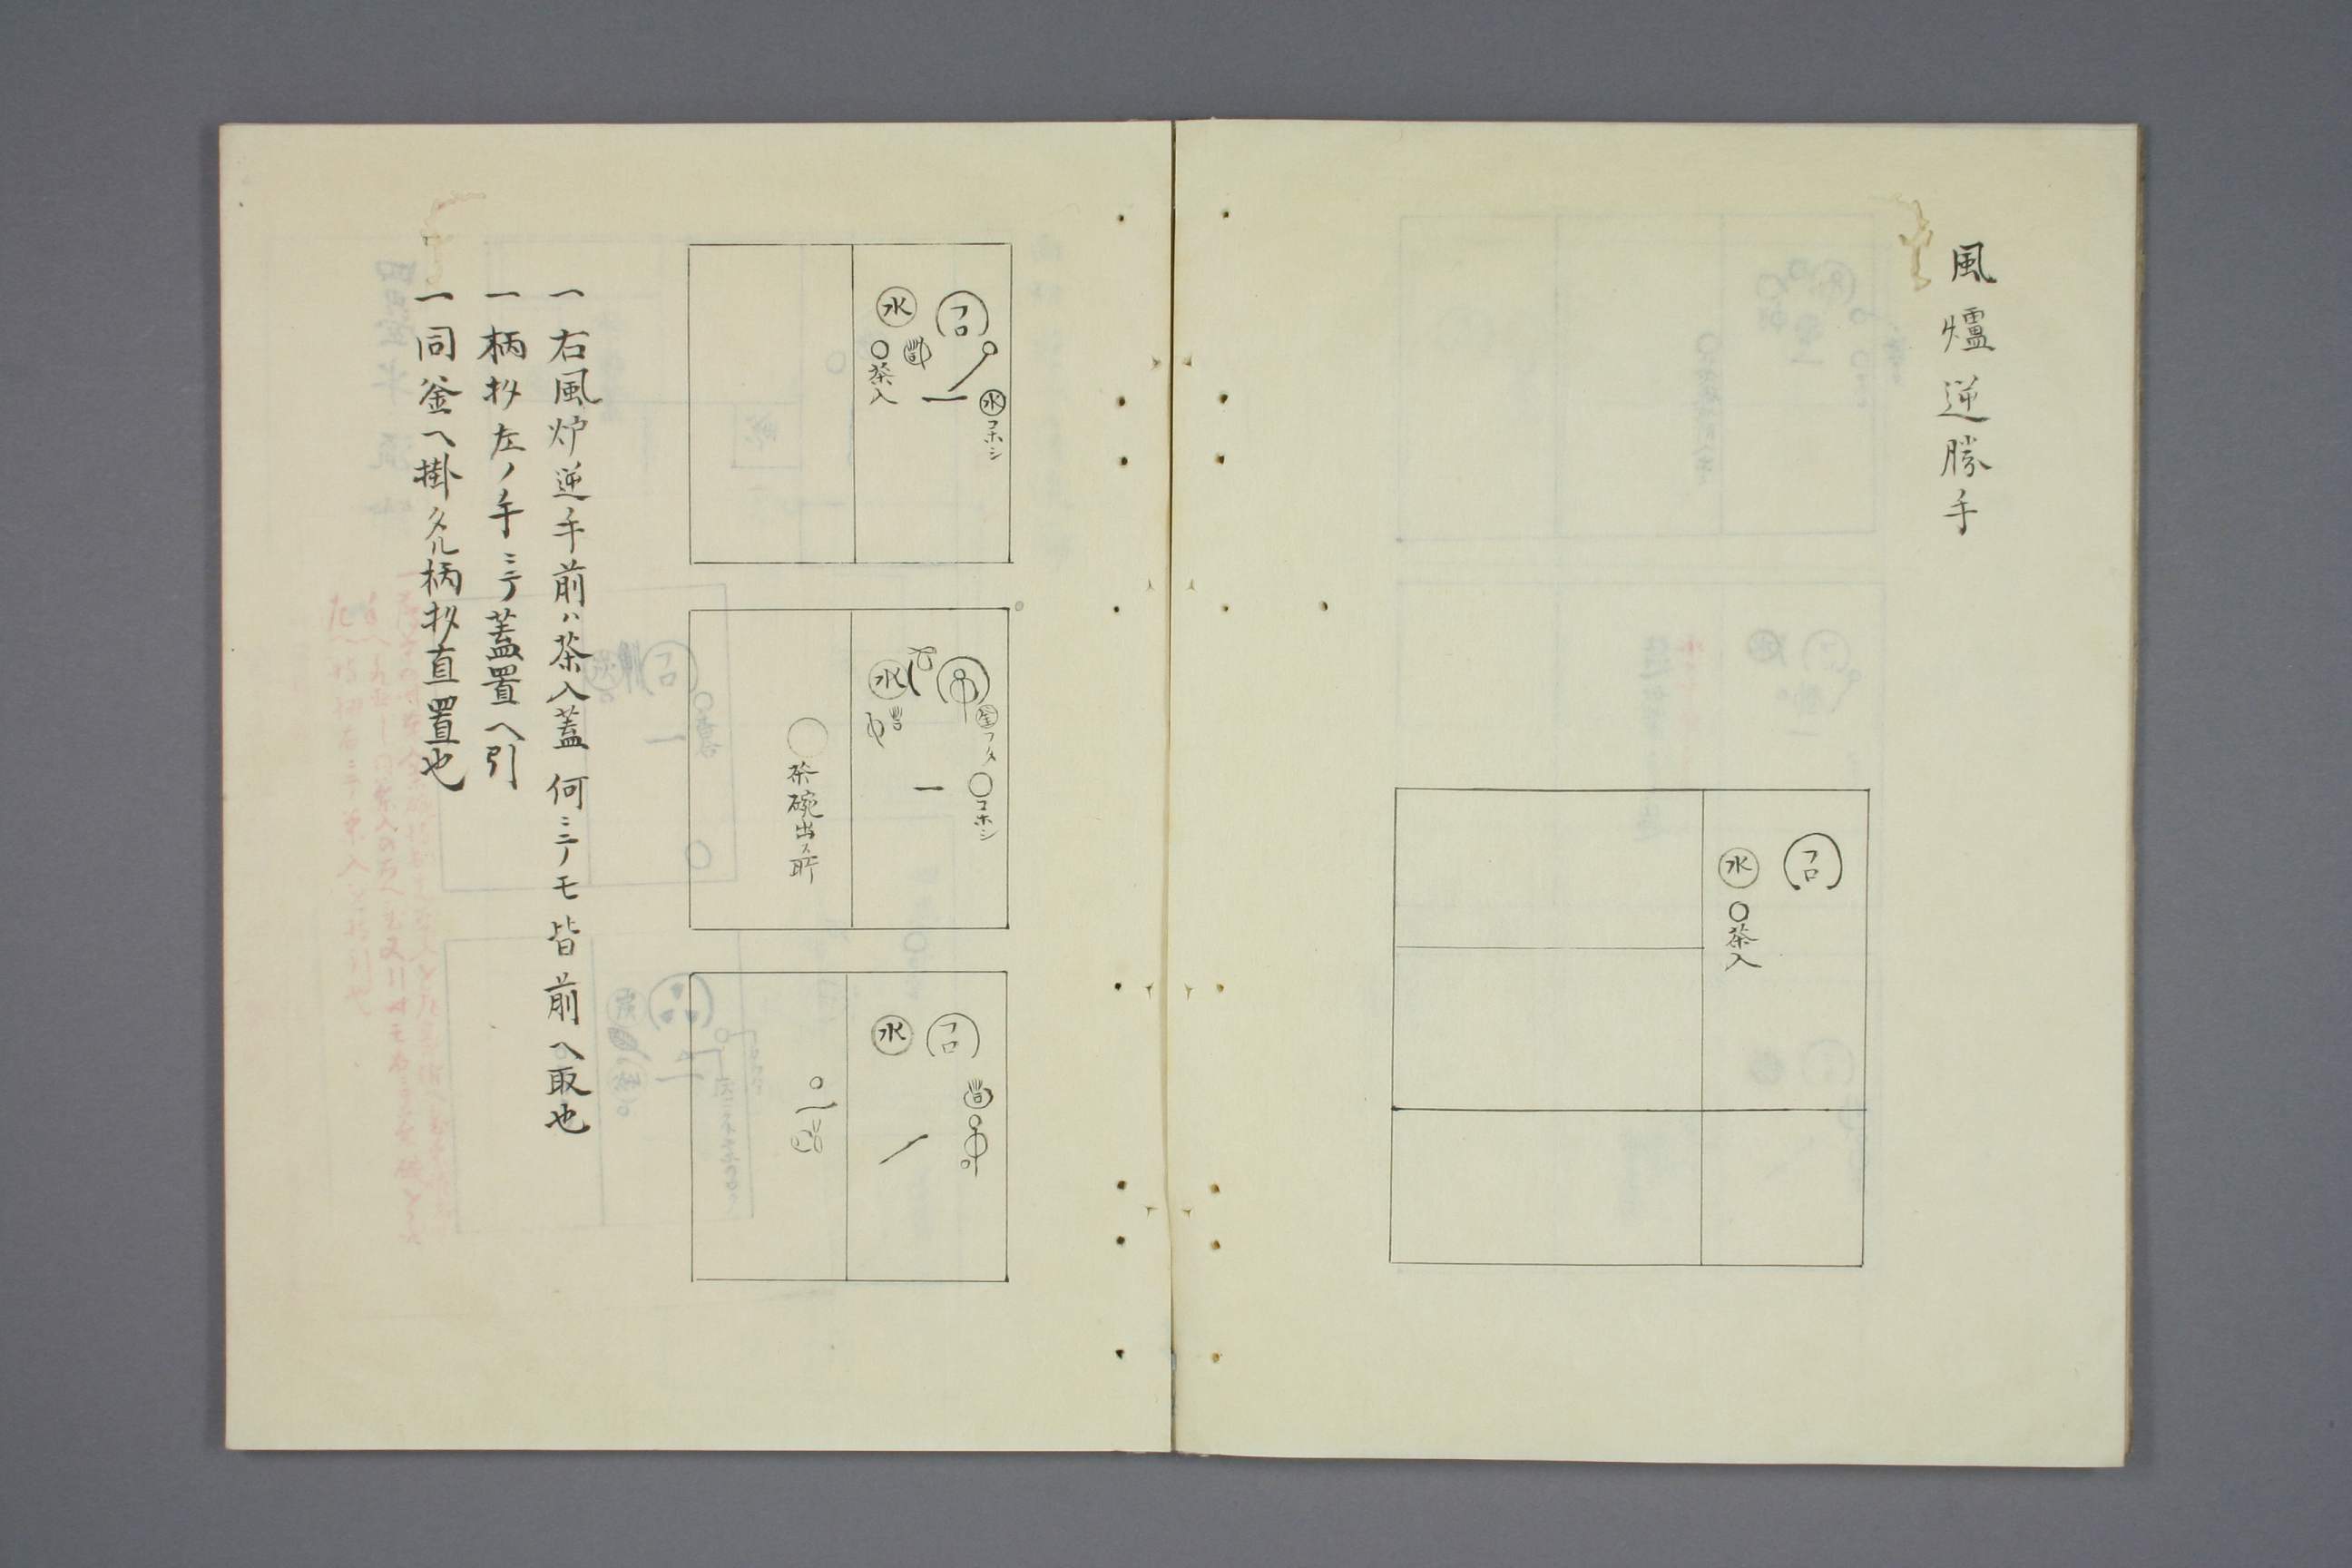 風爐逆勝手
フロ
水
茶入
フロ
水
茶入
水
コホシ
水
釜
フタ
コホシ
茶碗出ス所
フロ
水
一右風炉逆手前ハ茶入蓋何ニテモ皆前ヘ取也
一柄杓左ノ手ニテ蓋置ヘ引
一同釜ヘ掛タル柄杓直置也